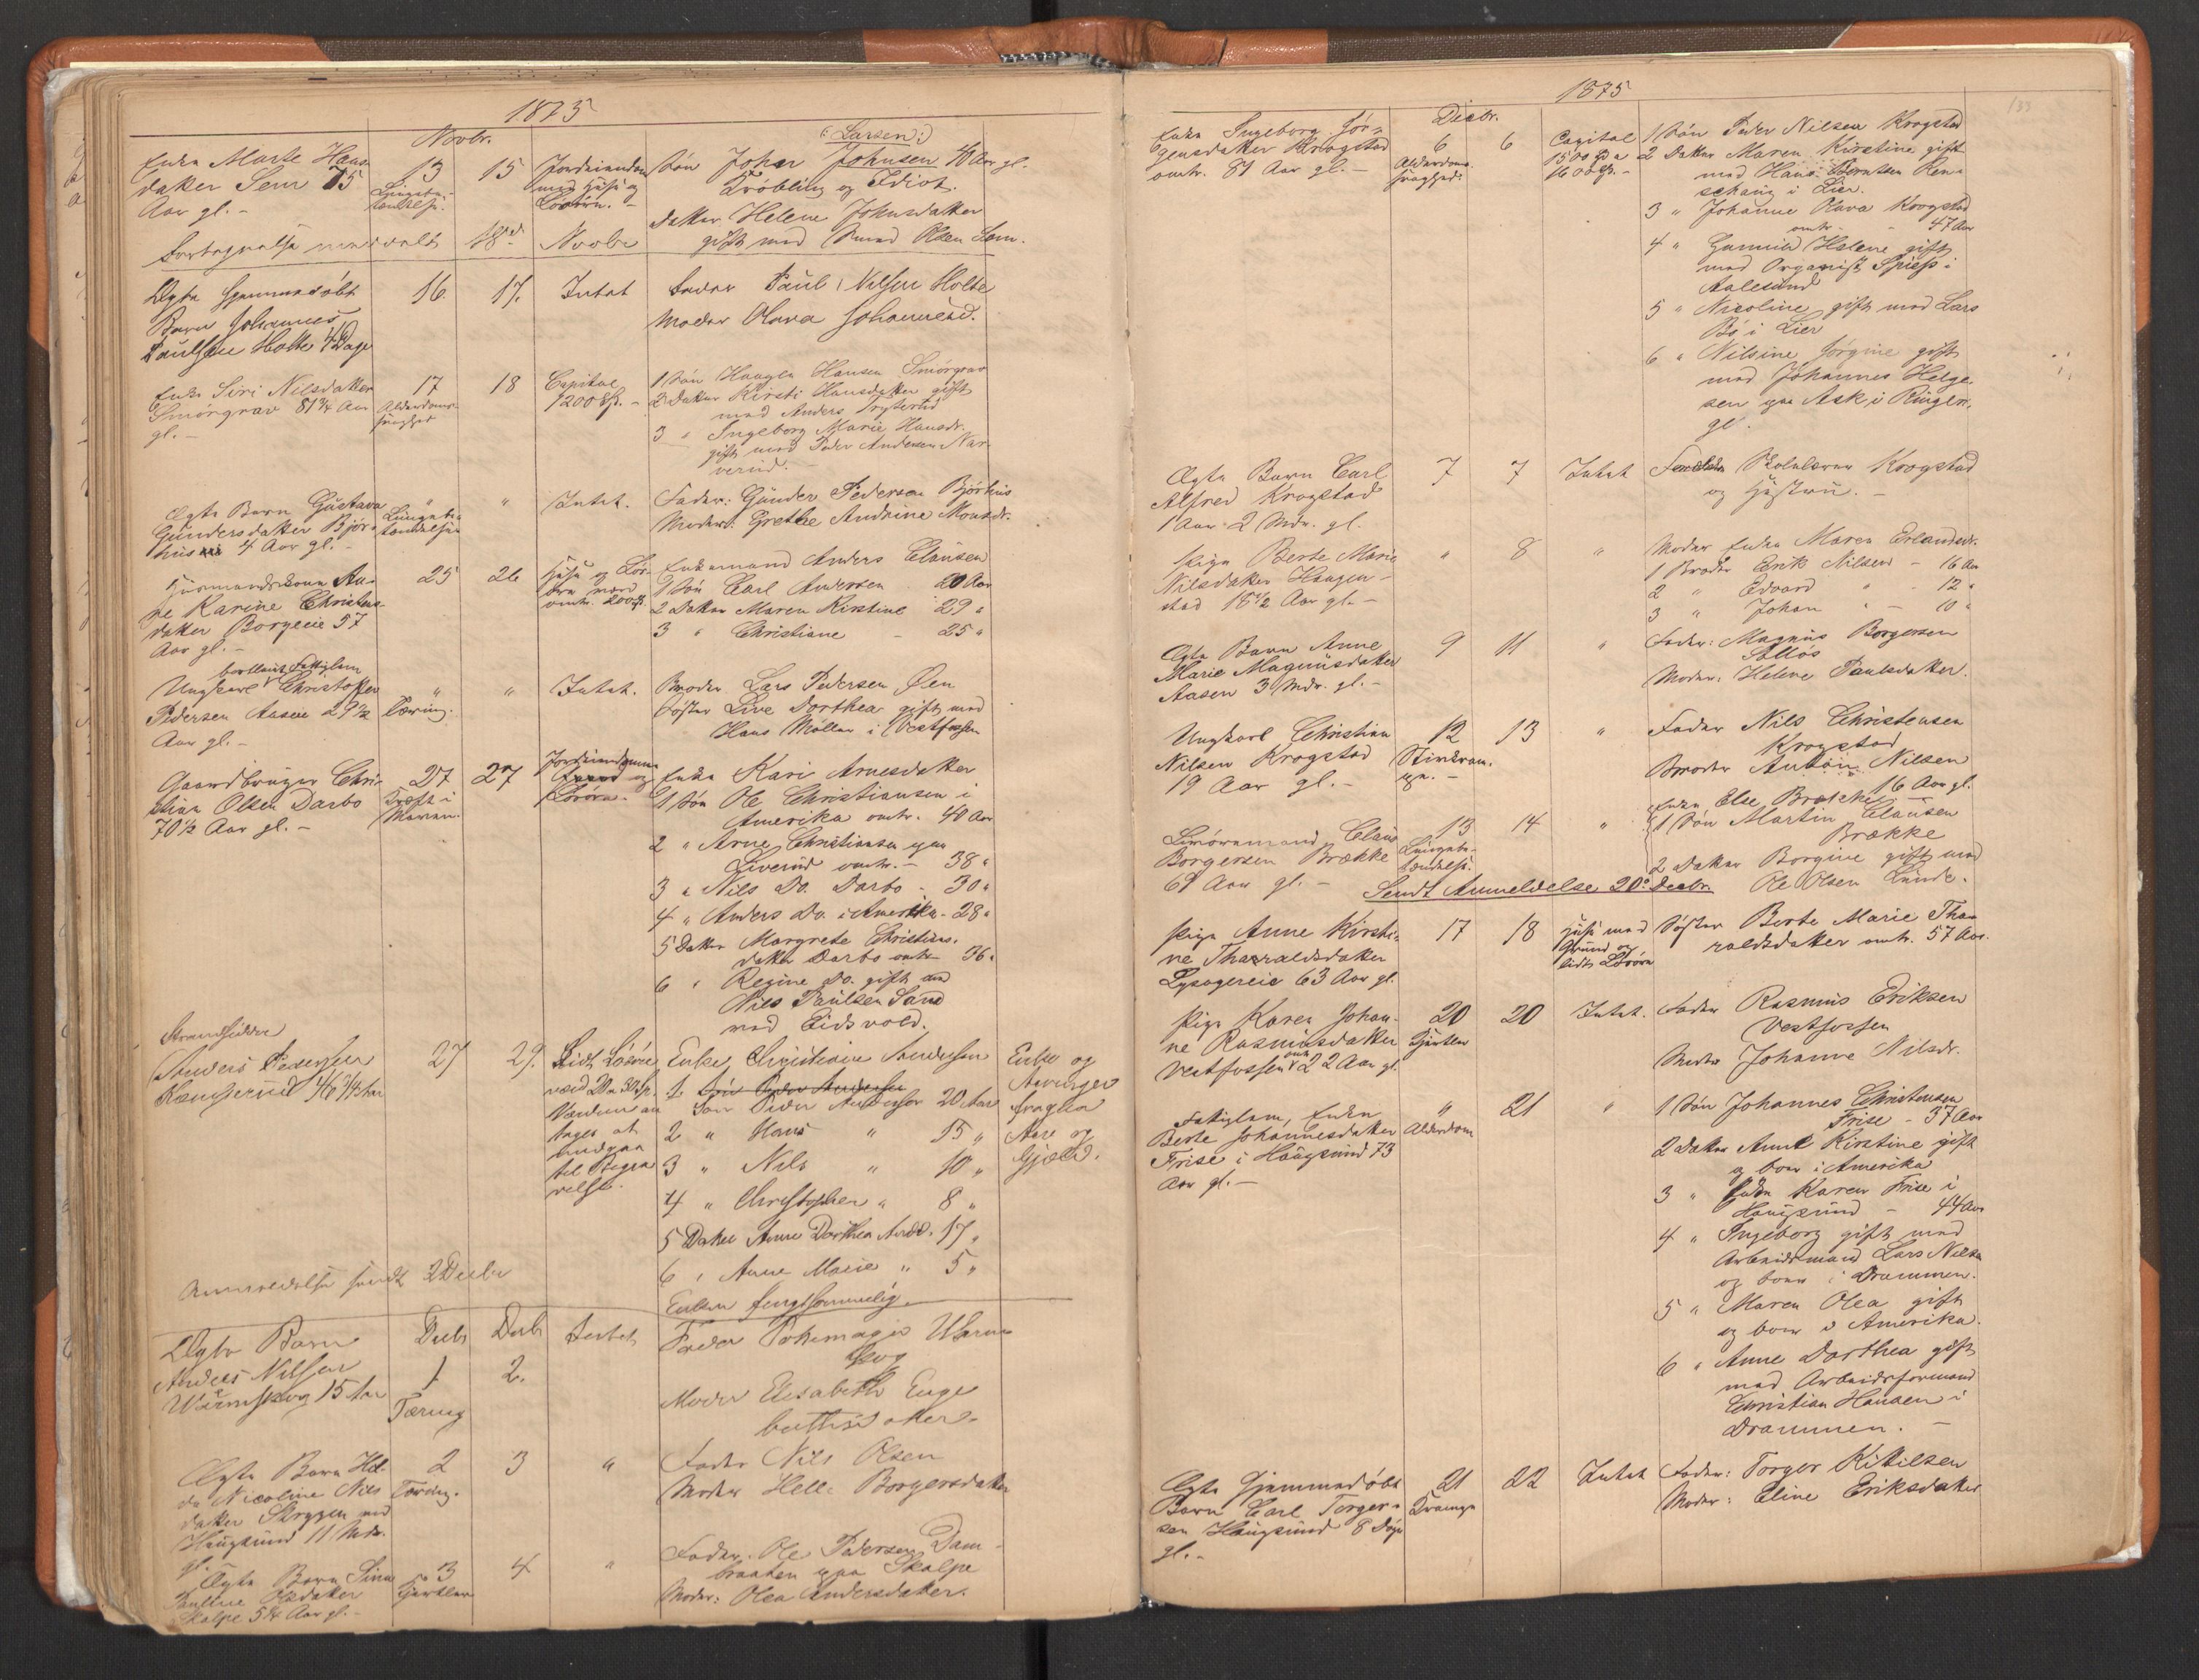 1875
Novbr.
(: Larsen:)
Enke Marte Hans-
datter Sem 75
Aar gl. -
13
Lungebe-
tændelse.
15
Jordeiendom
med Huse og
Løsøre. -
Søn Johan Johnsen 40 Aar gl.
Krøbling og Idiot.
Datter Helene Johnsdatter
gift med Olsen Sem.
18de Novbr
Ægte hjemmedøbt
Barn Johannes
Paulsen Holte 4 Dage
16
17.
Intet
Fader Paul Nilsen Holte
Moder Olava Johannesd.
Enke Siri Nilsdatter
Smørgrav 81 3/4 Aar
gl. -
17
Alderdoms-
svaghed
18
Capital
1200 Sp. -
1 Søn Haagen Hansen Smørgrav
2 Datter Kirsti Hansdatter gift
med Anders
3 " Ingeborg Marie Hansdr.
gift med Peder Andersen Nar-
verud. -
Ægte Barn Gustava
Gundersdatter Bjør-
hus 4 Aar gl. -
"
Lungebe-
tændelse
"
Intet.
Fader: Gunder Pedersen Bjørhus
Moder: Grethe Andrine Monsdr.
Husmandskone An-
ne Karine Christens-
datter Borgeeie 57
Aar gl. -
25
26
Huse og Løs-
øre værd
omtr. 200 Sp.
Enkemand Anders Clausen
1 Søn Carl Andersen 20 Aar
2 Datter Maren Kirstine 29 "
3 " Christiane - 25 "
Fattiglem
Ungkarl Christoffer
Pedersen Aasen 29 1/2
Aar gl. -
"
Tæring.
"
Intet.
Broder Lars Pedersen Øen
Søster Live Dorthea gift med
Hans Møller i Vestfossen
Gaardbruger Chri-
stian Olsen Darbo
70 1/2 Aar gl. -
27
Kræft i
Maven.
27
Jordeiendomme
og
Løsøre. -
Enke Kari Arnesdatter
1 Søn Ole Christiansen i
Amerika omtr. 40 Aar
2 " Arne Christiansen paa
Liverud omtr. - 38 "
3 " Nils Do. Darbo - 30 "
4 " Anders Do. i Amerika - 28 "
5 Datter Margrete Christians-
datter Darbo omtr. 36 "
6 " Regine Do. gift med
Nils Paulsen Sand
ved Eidsvold.
Strandsidder
Anders Pedersen
Kamperud 46 3/4 Aar
27
29.
Lidt Løsøre
værd 20 a 30 Sp.
Værdien an
tages at
medgaa
til Begra
velse.
Enke Christiane Andersen
1. Søn Peder Andersen
Søn Peder Andersen 20 Aar
2 " Hans " 15 "
3 " Nils " 10 "
4 " Christopher " 8 "
5 Datter Anne Dorthea Andd. 17 "
6 " Anne Marie " 5 "
Enken frugtsommelig.
Enke og
Arvinger
fragaa
Arv og
Gjæld.
Anmeldelse sendt 2 Decbr
Ægte Barn
Anders Nilsen
Wærnskog 15 Aar
Decbr
1
Tæring
Decbr
2.
Intet
Fader Pottemager Wærn-
skog
Moder Elisabeth Enge
brethsdatter
Ægte Barn Hel-
da Nicoline Nils
datter Skryggen ved
Hougsund 11 Mdr.
gl.
2
Tæring.
3
"
Fader Nils Olsen
Moder Helle Borgersdatter
Ægte Barn Sina
Pauline Olsdatter
Skalpe 5 1/4 Aar gl. -
3
4
"
Fader: Ole Pedersen Dam-
braaten paa Skalpe
Moder: Olea Andersdatter.
1875
133
Decbr.
Enke Ingeborg Jør-
gensdatter Krogstad
omtr. 81 Aar gl. -
6
Alderdoms-
svaghed.
6
Capital
1500 Sp a
1600 Sp. -
1 Søn Peder Nilsen Krogstad
2 Datter Maren Kirstine gift
med Hans Berntsen Ren-
skaug i Lier.
3 " Johanne Olava Krogstad
omtr. - 47 Aar
4 " Gunnild Helene gift
med Organist Spieß i
Aalesund
5 " Nicoline gift med Lars
Bø i Lier
6 " Nilsine Jørgine gift
med Johannes Helge-
sen paa Ask i Ringeri-
ge.
Ægte Barn Carl
Alfred Krogstad
1 Aar 2 Mdr. gl.
7
7
Intet
Forældre Skolelærer Krogstad
og Hustru. -
Pige Berte Marie
Nilsdatter Haagen-
stad 18 1/2 Aar gl. -
"
8
"
Moder Enke Maren Erlandsdr.
1 Broder Erik Nilsen - 16 Aar
2 " Edvard " - 12 "
3 " Johan " - 10 "
Ægte Barn Anne
Marie Magnusdatter
Aasen 3 Mdr. gl. -
9
11
"
Fader: Magnus Borgersen
Solløs
Moder: Helene Paulsdatter.
Ungkarl Christian
Nilsen Krogstad
19 Aar gl. -
12
13
"
Fader Nils Christensen
Krogstad
Broder Anton Nilsen
16 Aar gl.
Claus
Borgersen Brække
69 Aar gl. -
13
Lungebe-
tændelse.
14
"
Enke Else Brække
1 Søn Martin Clausen
Brække
2 Datter Borgine gift med
Ole Olsen Lunde.
Sendt Anmeldelse 20de Decbr.
Pige Anne Kirsti-
ne Tharaldsdatter
Lysogereie 63 Aar gl.
17
18
Huse med
Grund og
lidt Løsøre
Søster Berte Marie Tha-
raldsdatter omtr. 57 Aar.
Pige Karen Johan-
ne Rasmusdatter
Vestfossen omtr 22 Aar gl.
20
20
Intet.
Fader Rasmus Eriksen
Vestfossen
Moder Johanne Nilsdr.
Fattiglem, Enke
Berte Johannesdatter
Frise i Hougsund 73
Aar gl. -
"
Alderdom
21
"
1 Søn Johannes Christensen
Frise - 37 Aar
2 Datter Anne Kirstine gift
og boer i Amerika
3 " Enke Karen Frise i
Hougsund - 44 Aar
4 " Ingeborg gift med
Arbeidsmand Lars Nilsen
og boer i Drammen.
5 " Maren Olea gift
og boer i Amerika.
6 " Anne Dorthea gift
med Arbeidsformand
Christian Hansen i
Drammen. -
Ægte Hjemmedøbt
Barn Carl Torger-
sen Hougsund 8 Dage
gl. -
21
22
Intet
Fader: Torger Kittilsen
Moder: Eline Eriksdatter